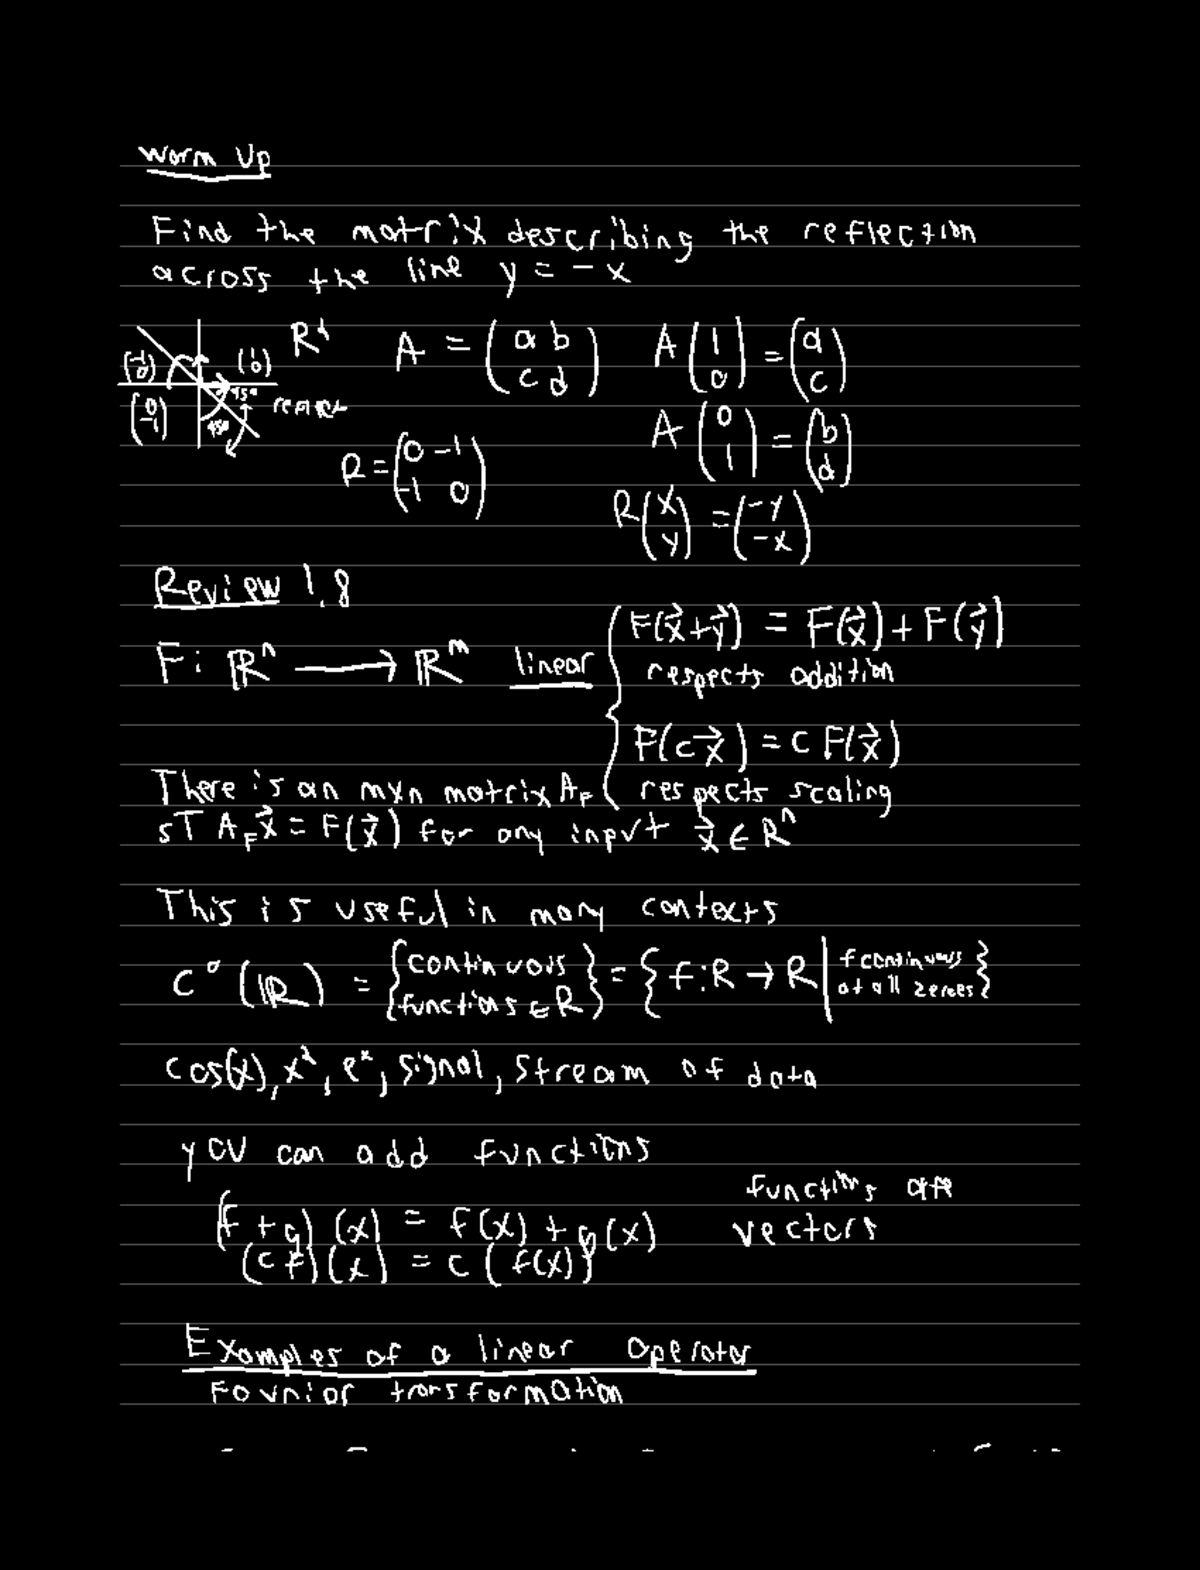 Warm Up
Find the matrix describing the reflection
across the line y = - x
R² A = (a b / c d) A(1 / 0) = (a / c)
(-1 / 0) (1 / 0)
(0 / -1) 45° 45°
A(0 / 1) = (b / d)
R = (0 -1 / -1 0)
R(x / y) = (-y / -x)
Review 1.8
F: ℝⁿ ⟶ ℝᵐ linear { F(x⃗+y⃗) = F(x⃗) + F(y⃗)
respects addition
F(cx⃗) = c F(x⃗)
respects scaling
There is an mxn matrix A_F
sT A_F x⃗ = F(x⃗) for any input x⃗ ∈ Rⁿ
This is useful in many contexts
C⁰(ℝ) = {continuous functions ∈ R} = {f: R → R | f continuous at all zeroes}
cos(x), x², eˣ, signal, stream of data
you can add functions
functions are
vectors
(f + g)(x) = f(x) + g(x)
(cf)(x) = c(f(x))
Examples of a linear operator
Fournior transformation